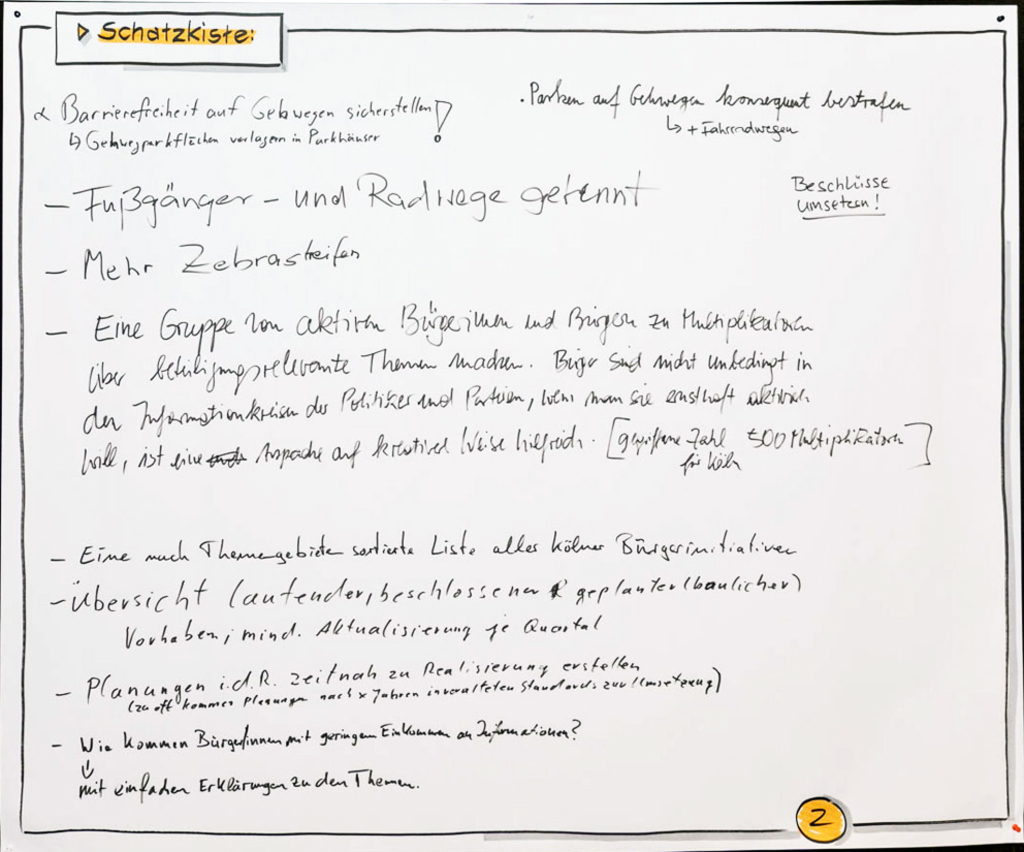 ▷ Schatzkiste:
∝ Barrierefreiheit auf Gehwegen sicherstellen!
↳ Gehwegparkflächen verlagern in Parkhäuser
• Parken auf Gehwegen konsequent bestrafen
↳ + Fahrradwegen
– Fußgänger – und Radwege getennt
Beschlüsse
umsetzen!
– Mehr Zebrastreifen
– Eine Gruppe von aktiven Bürgerinnen und Bürgern zu Multiplikatoren
über beteiligungsrelevante Themen machen. Bürger sind nicht unbedingt in
den Informationskreisen der Politiker und Parteien, wenn man sie ernsthaft aktivieren
will, ist eine Ansprache auf kreativer Weise hilfreich. [gegriffene Zahl 500 Multiplikatoren
für Köln]
– Eine nach Themengebieten sortierte Liste aller Kölner Bürgerinitiativen
– Übersicht laufender, beschlossener & geplanter (baulicher)
Vorhaben; mind. Aktualisierung je Quartal
– Planungen i.d.R. zeitnah zu Realisierung erstellen
(zu oft kommen Planungen nach x Jahren in veralteten Standards zur Umsetzung)
– Wie kommen Bürger/innen mit geringem Einkommen an Informationen?
↓
mit einfachen Erklärungen zu den Themen.
2